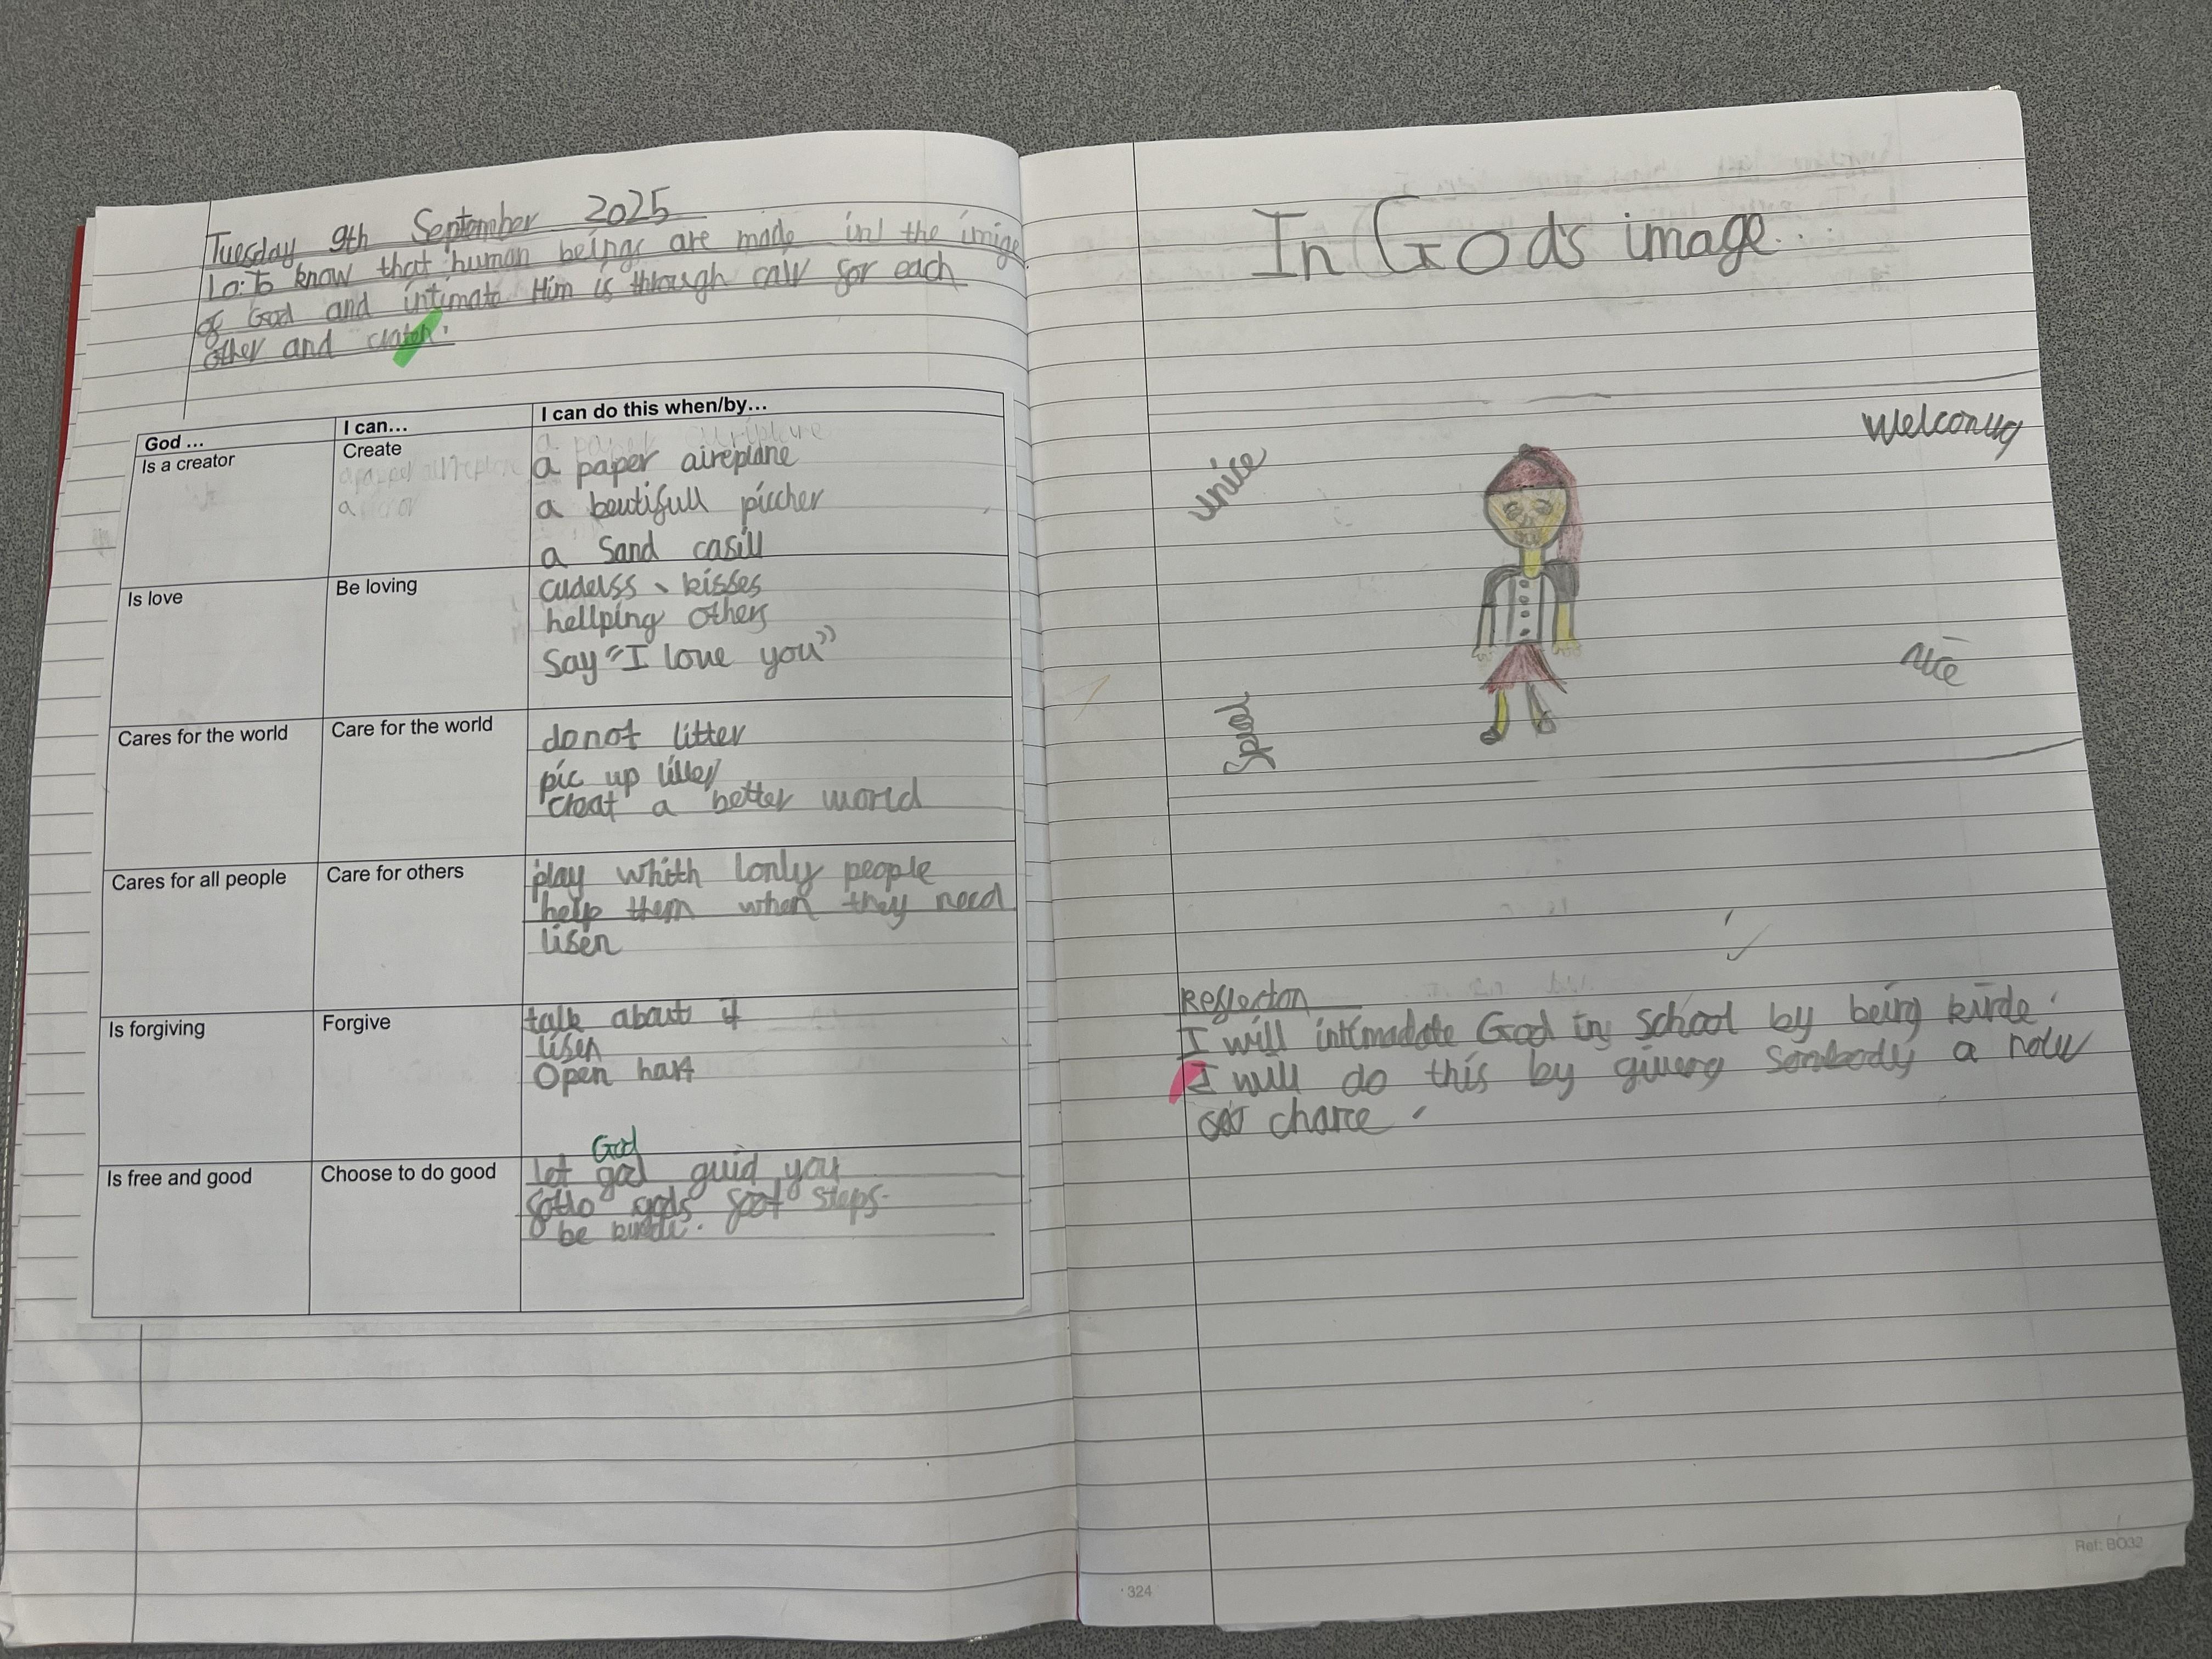 Tuesday 9th September 2025
Lo: To know that human beings are made in the imige
of God and intimate Him is through calr for each
other and
God ...
I can...
I can do this when/by...
Is a creator
Create
a paper aireplane
a beutifull piccher
a Sand casill
Is love
Be loving
cudelss, kisses
hellping others
Say "I love you"
Cares for the world
Care for the world
do not litter
pic up litter
creat a better world
Cares for all people
Care for others
play whith lonly people
help them when they need
lisen
Is forgiving
Forgive
talk about it
lisen
Open hart
Is free and good
Choose to do good
God
let god guid you
gods foot steps.
be kinde.
In God's image...
unice
Welconug
nice
Reflecton
I will intimadate God in School by being kinde.
I will do this by giveng Sombody a now
chance.
324
Ref: BO32